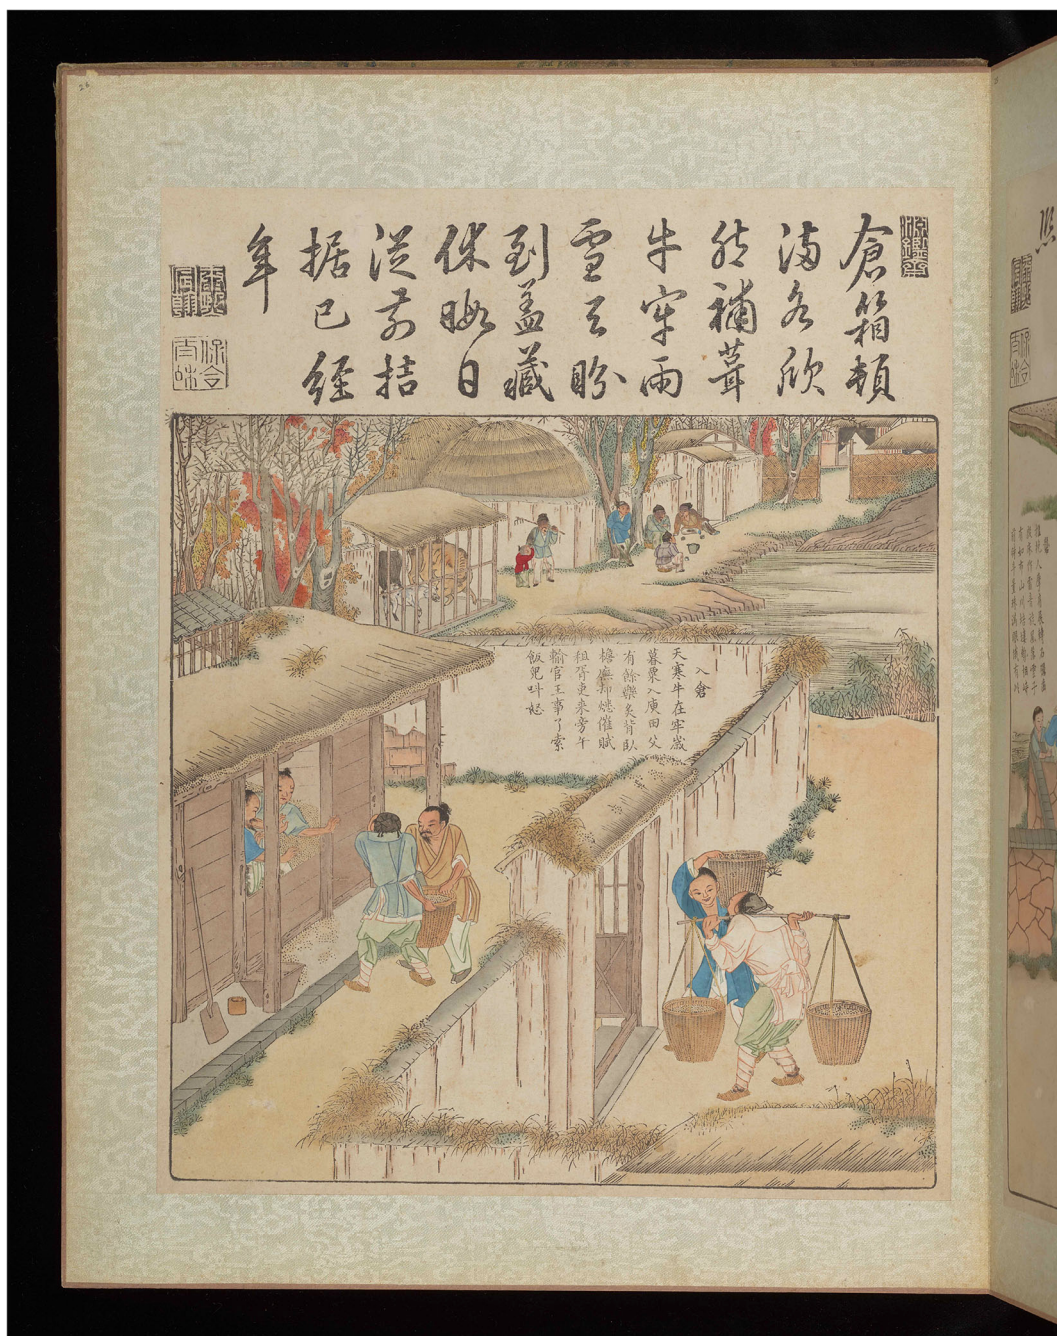 淵鑒齋
倉箱頓
滿各欣
然補葺
牛牢雨
雪天盼
到蓋藏
休暇日
從前拮
据已經
年
康熙宸翰
保合太和
入倉
天寒牛在牢歲
暮粟入庾田父
有餘樂炙背臥
檐廡却愁催賦
租胥吏來旁午
輸官王事了索
飯兒叫怒
26